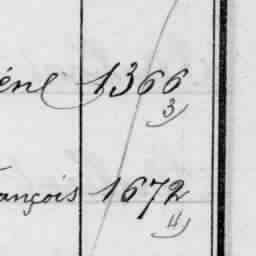 éne 1366
3)
ançois 1672
4)